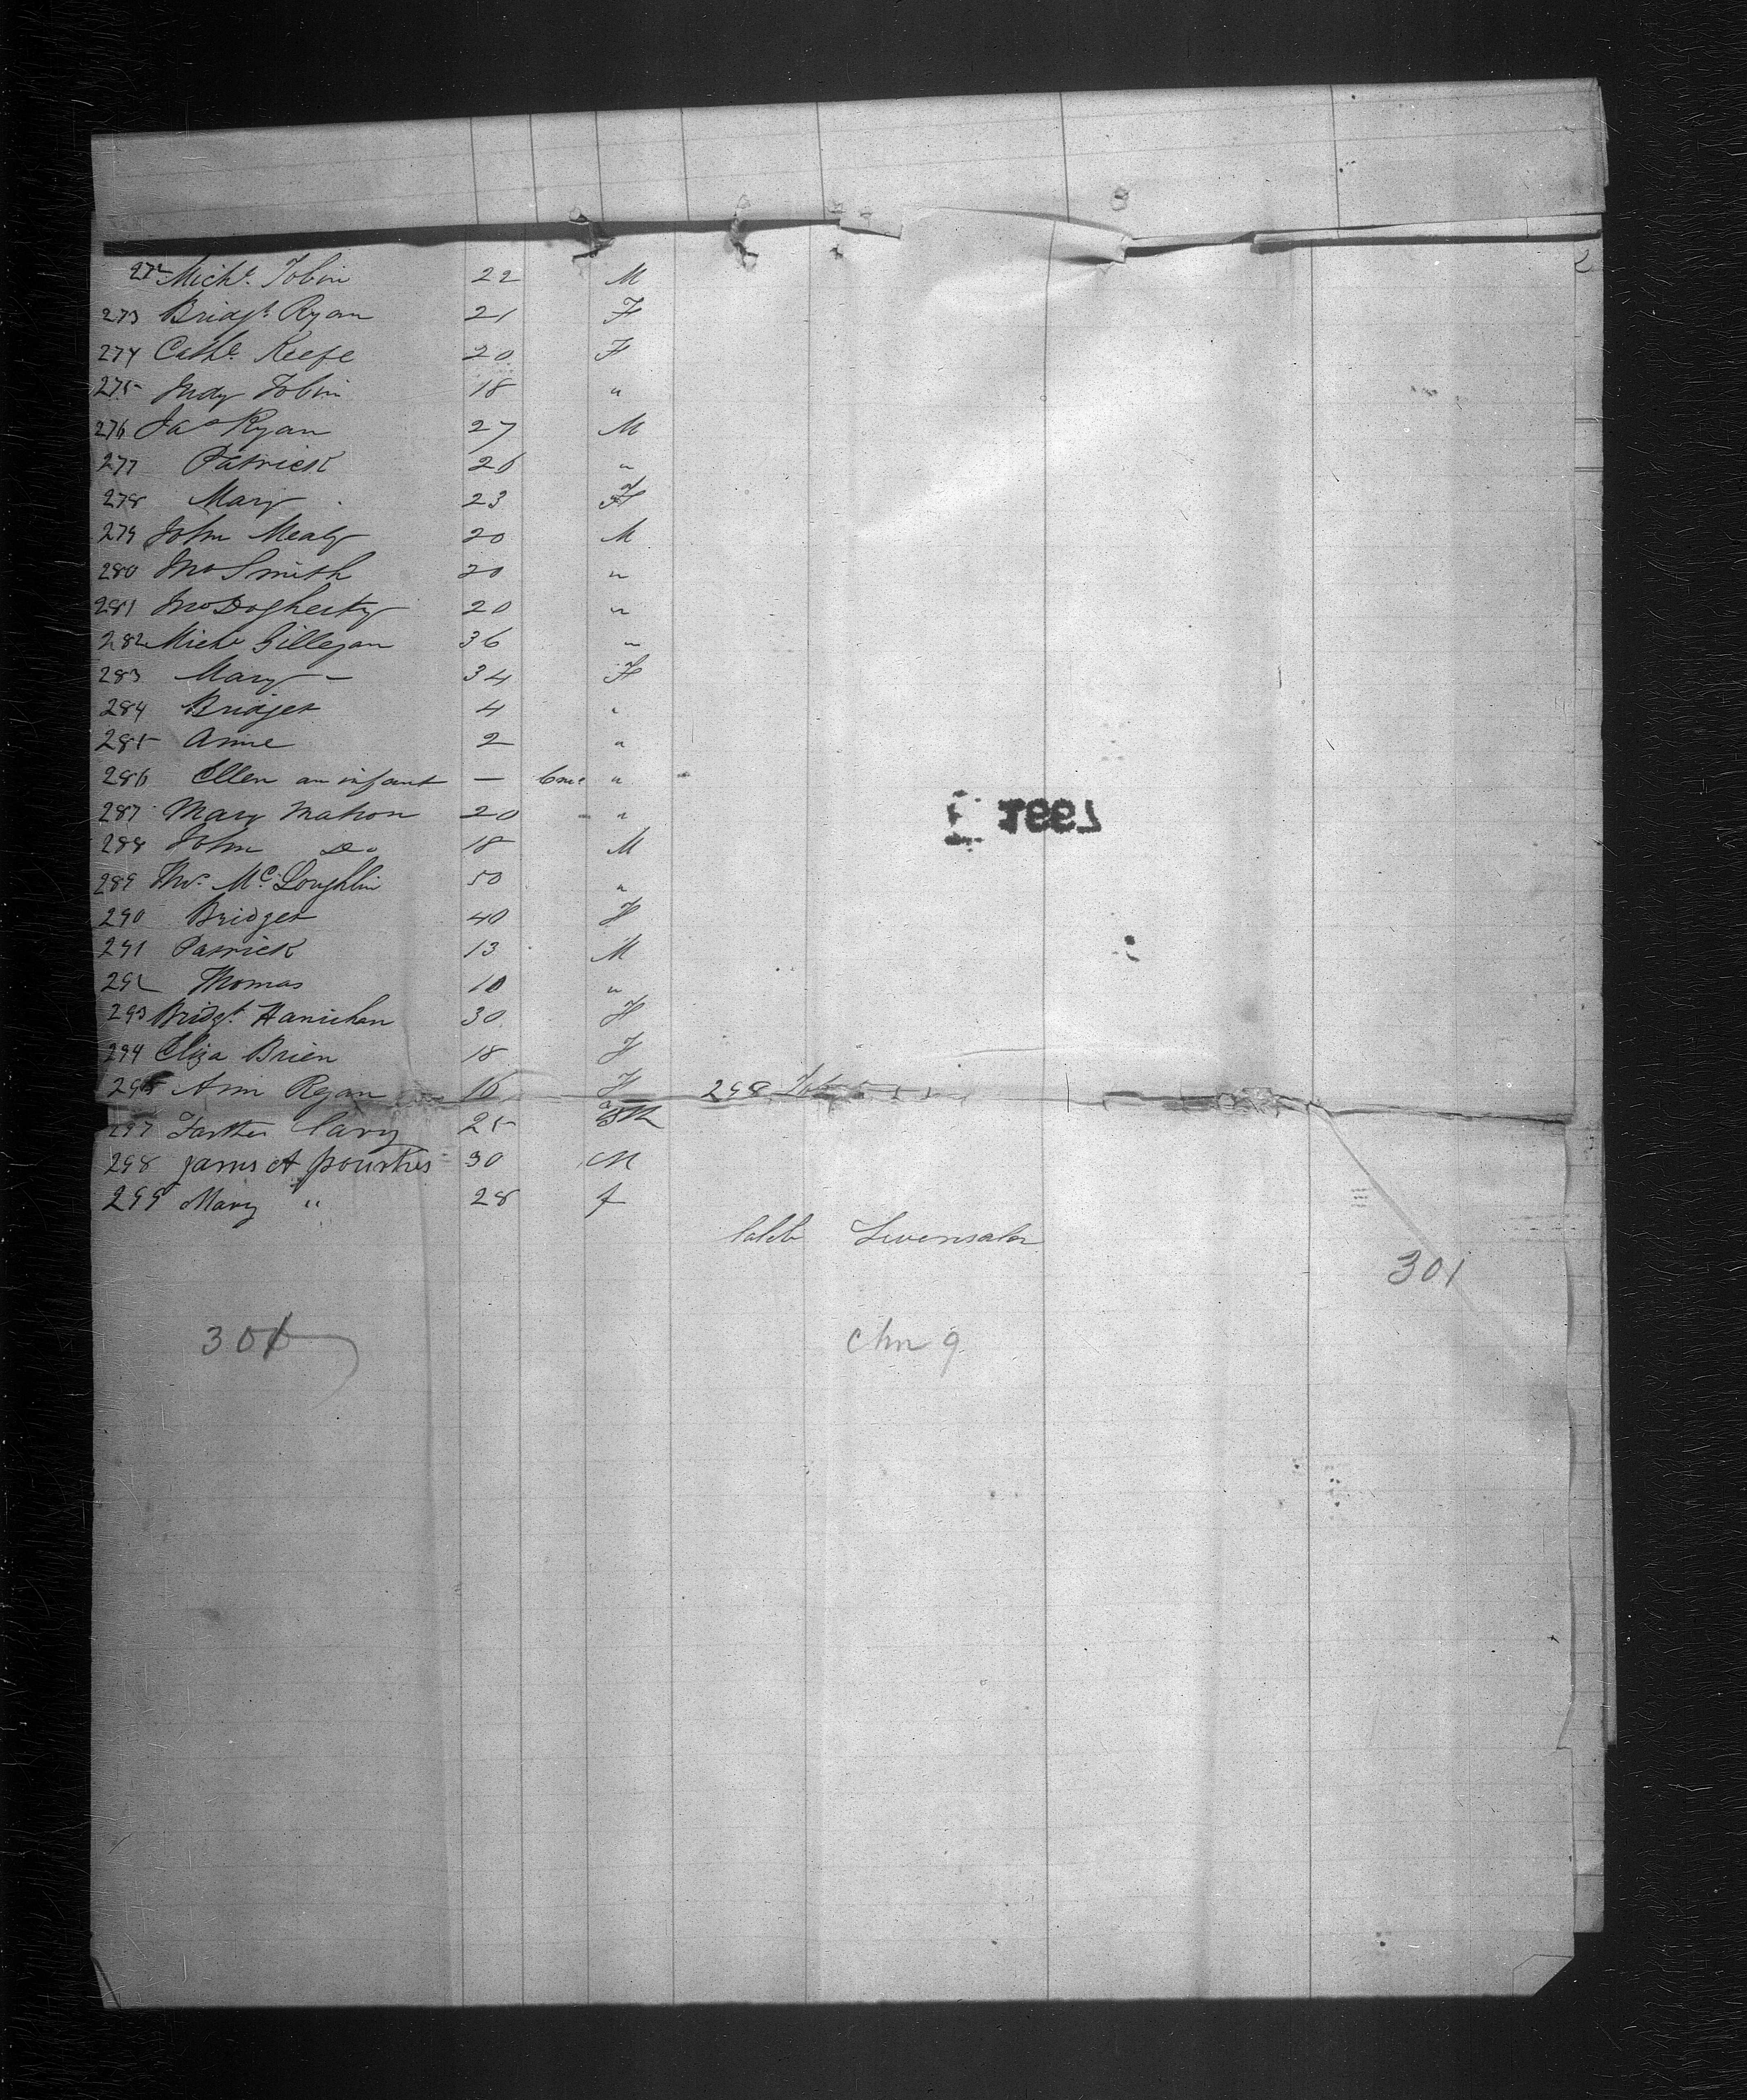 272 Michl. Tobin 22 M
273 Bridgt. Ryan 21 F
274 Cathe. Keefe 20 F
275 Judy Tobin 18 "
276 Jas Ryan 27 M
277 Patrick 26 "
278 Mary 23 F
279 John Mealy 20 M
280 Jno Smith 20 "
281 Jno Dogherty 20 "
282 Michl Gillegan 36 "
283 Mary – 34 F
284 Bridget 4 "
285 Anne 2 "
286 Ellen an infant — 6 ms "
287 Mary Mahon 20 "
288 John Do 18 M
289 Thos. McLoughlin 50 "
290 Bridget 40 F
291 Patrick 13 M
292 Thomas 10 "
293 Bridgt. Hanichan 30 F
294 Eliza Brien 18 F
295 Ann Ryan 16 F 298
297 Carry 25
298 James A 30 M
299 Mary " 28 f
Caleb Levensaler
301
301
Chn 9